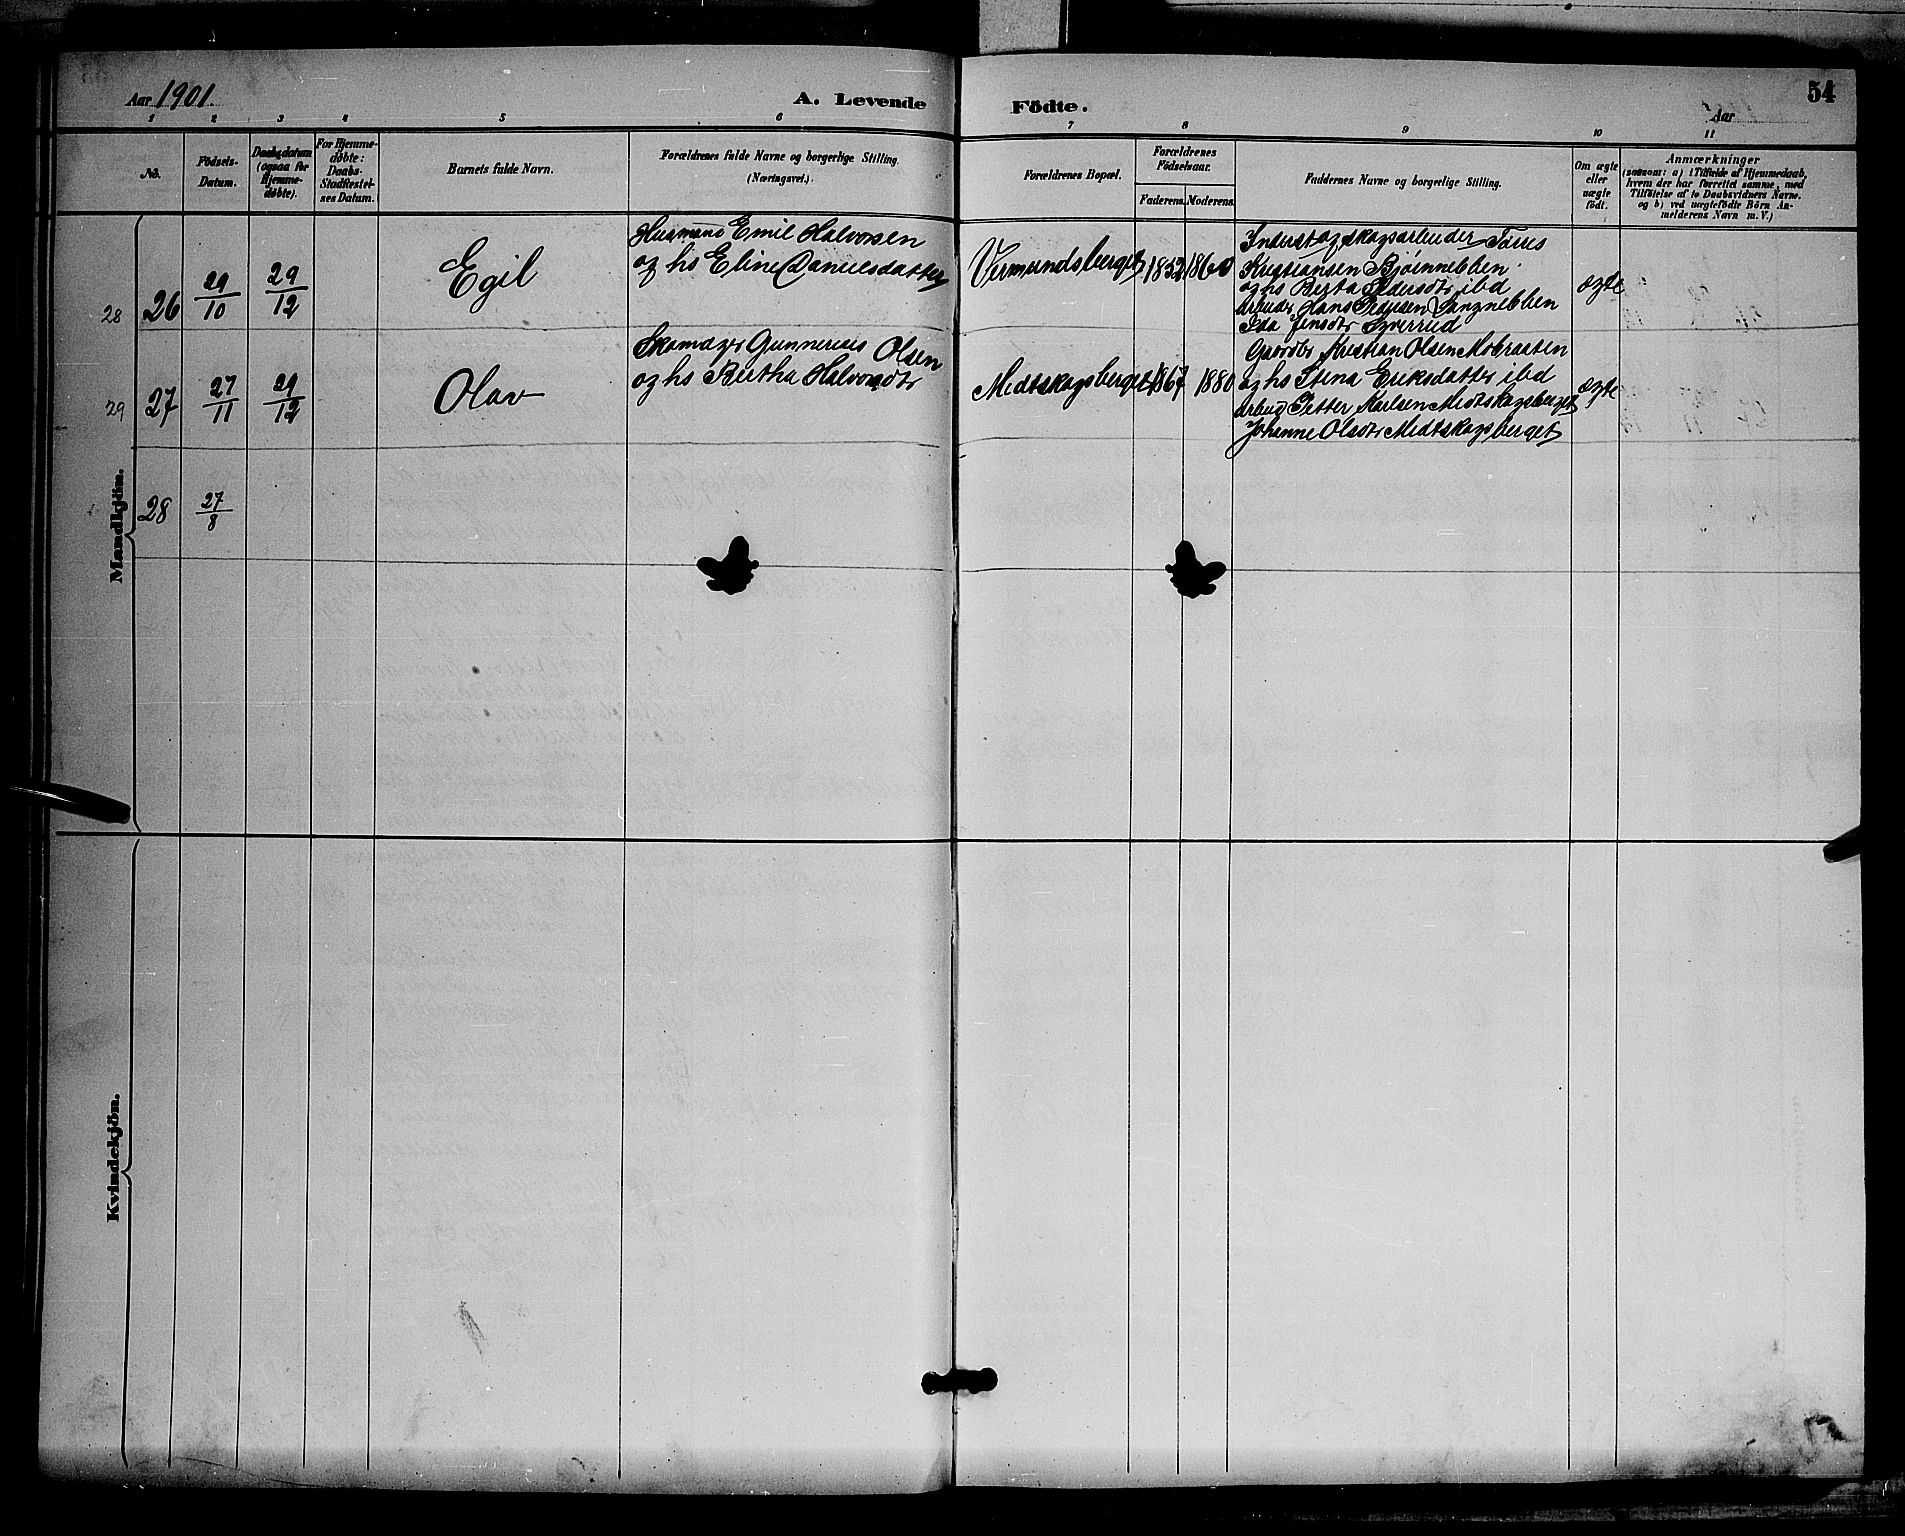 Aar 1901.
A. Levende Födte.
54
Aar
1 2 3 4 5 6 7 8 9 10 11
No.
Födsels-
Datum.
Daabsdatum
(ogsaa for
Hjemme-
døbte).
For Hjemme-
døbte:
Daabs-
Stadfestel-
ses Datum.
Barnets fulde Navn.
Forældrenes fulde Navne og borgerlige Stilling.
(Næringsvei.)
Forældrenes Bopæl.
Forældrenes
Födselsaar.
Faderens. Moderens.
Faddernes Navne og borgerlige Stilling.
Om ægte
eller
uægte
födt.
Anmærkninger
(saasom: a) i Tilfælde af Hjemmedaab,
hvem der har forrettet samme, med
Tilføielse af to Daabsvidners Navne.
og b) ved uægtefödte Börn An-
melderens Navn m. V.)
Mandkjön.
28 26 29/10 29/12 Egil
Husmand Emil Halvorsen
og hs Eline Danielsdatter
Vermundsberget 1852 1860
Inderst og skogsarbeider
Kristiansen Bjørnnebben
og hs Berta Pedersdtr ibd
Arbeider Hans Langnebben
Ida Jensdtr
ægte
29 27 27/11 29/12 Olav
Skomager Gunnerius Olsen
og hs Bertha Halvorsdtr
Medtskogsberget 1867 1880
Gaardbr Kristian Olsen Mobraaten
og hs Stina Eriksdatter ibd
Arbeid Petter Karlsen Medtskogsberget
Johanne Olsdtr Medtskogsberget
ægte
28 27/8
Kvindekjön.